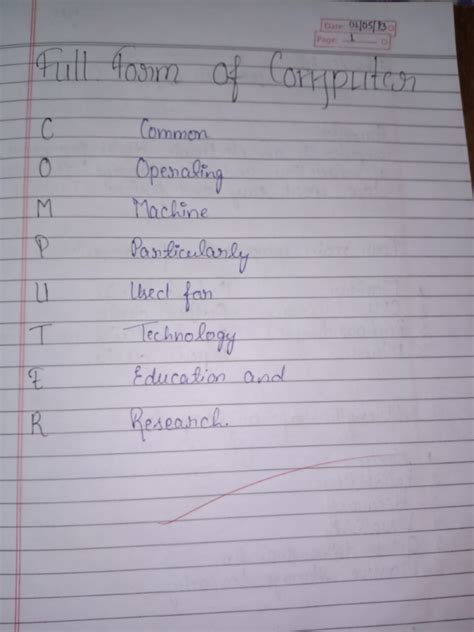 Date: 01/05/23
Page: 1
Full Form of Computer
C Common
O Operating
M Machine
P Particularly
U Used for
T Technology
E Education and
R Research.